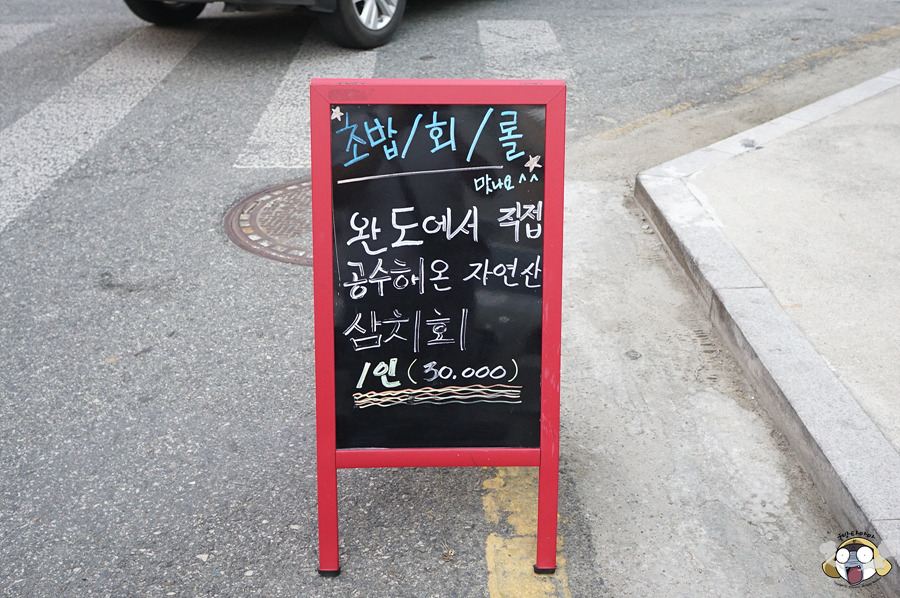 초밥/회/롤
맛나요^^
완도에서 직접
공수해온 자연산
삼치회
1인(30.000)